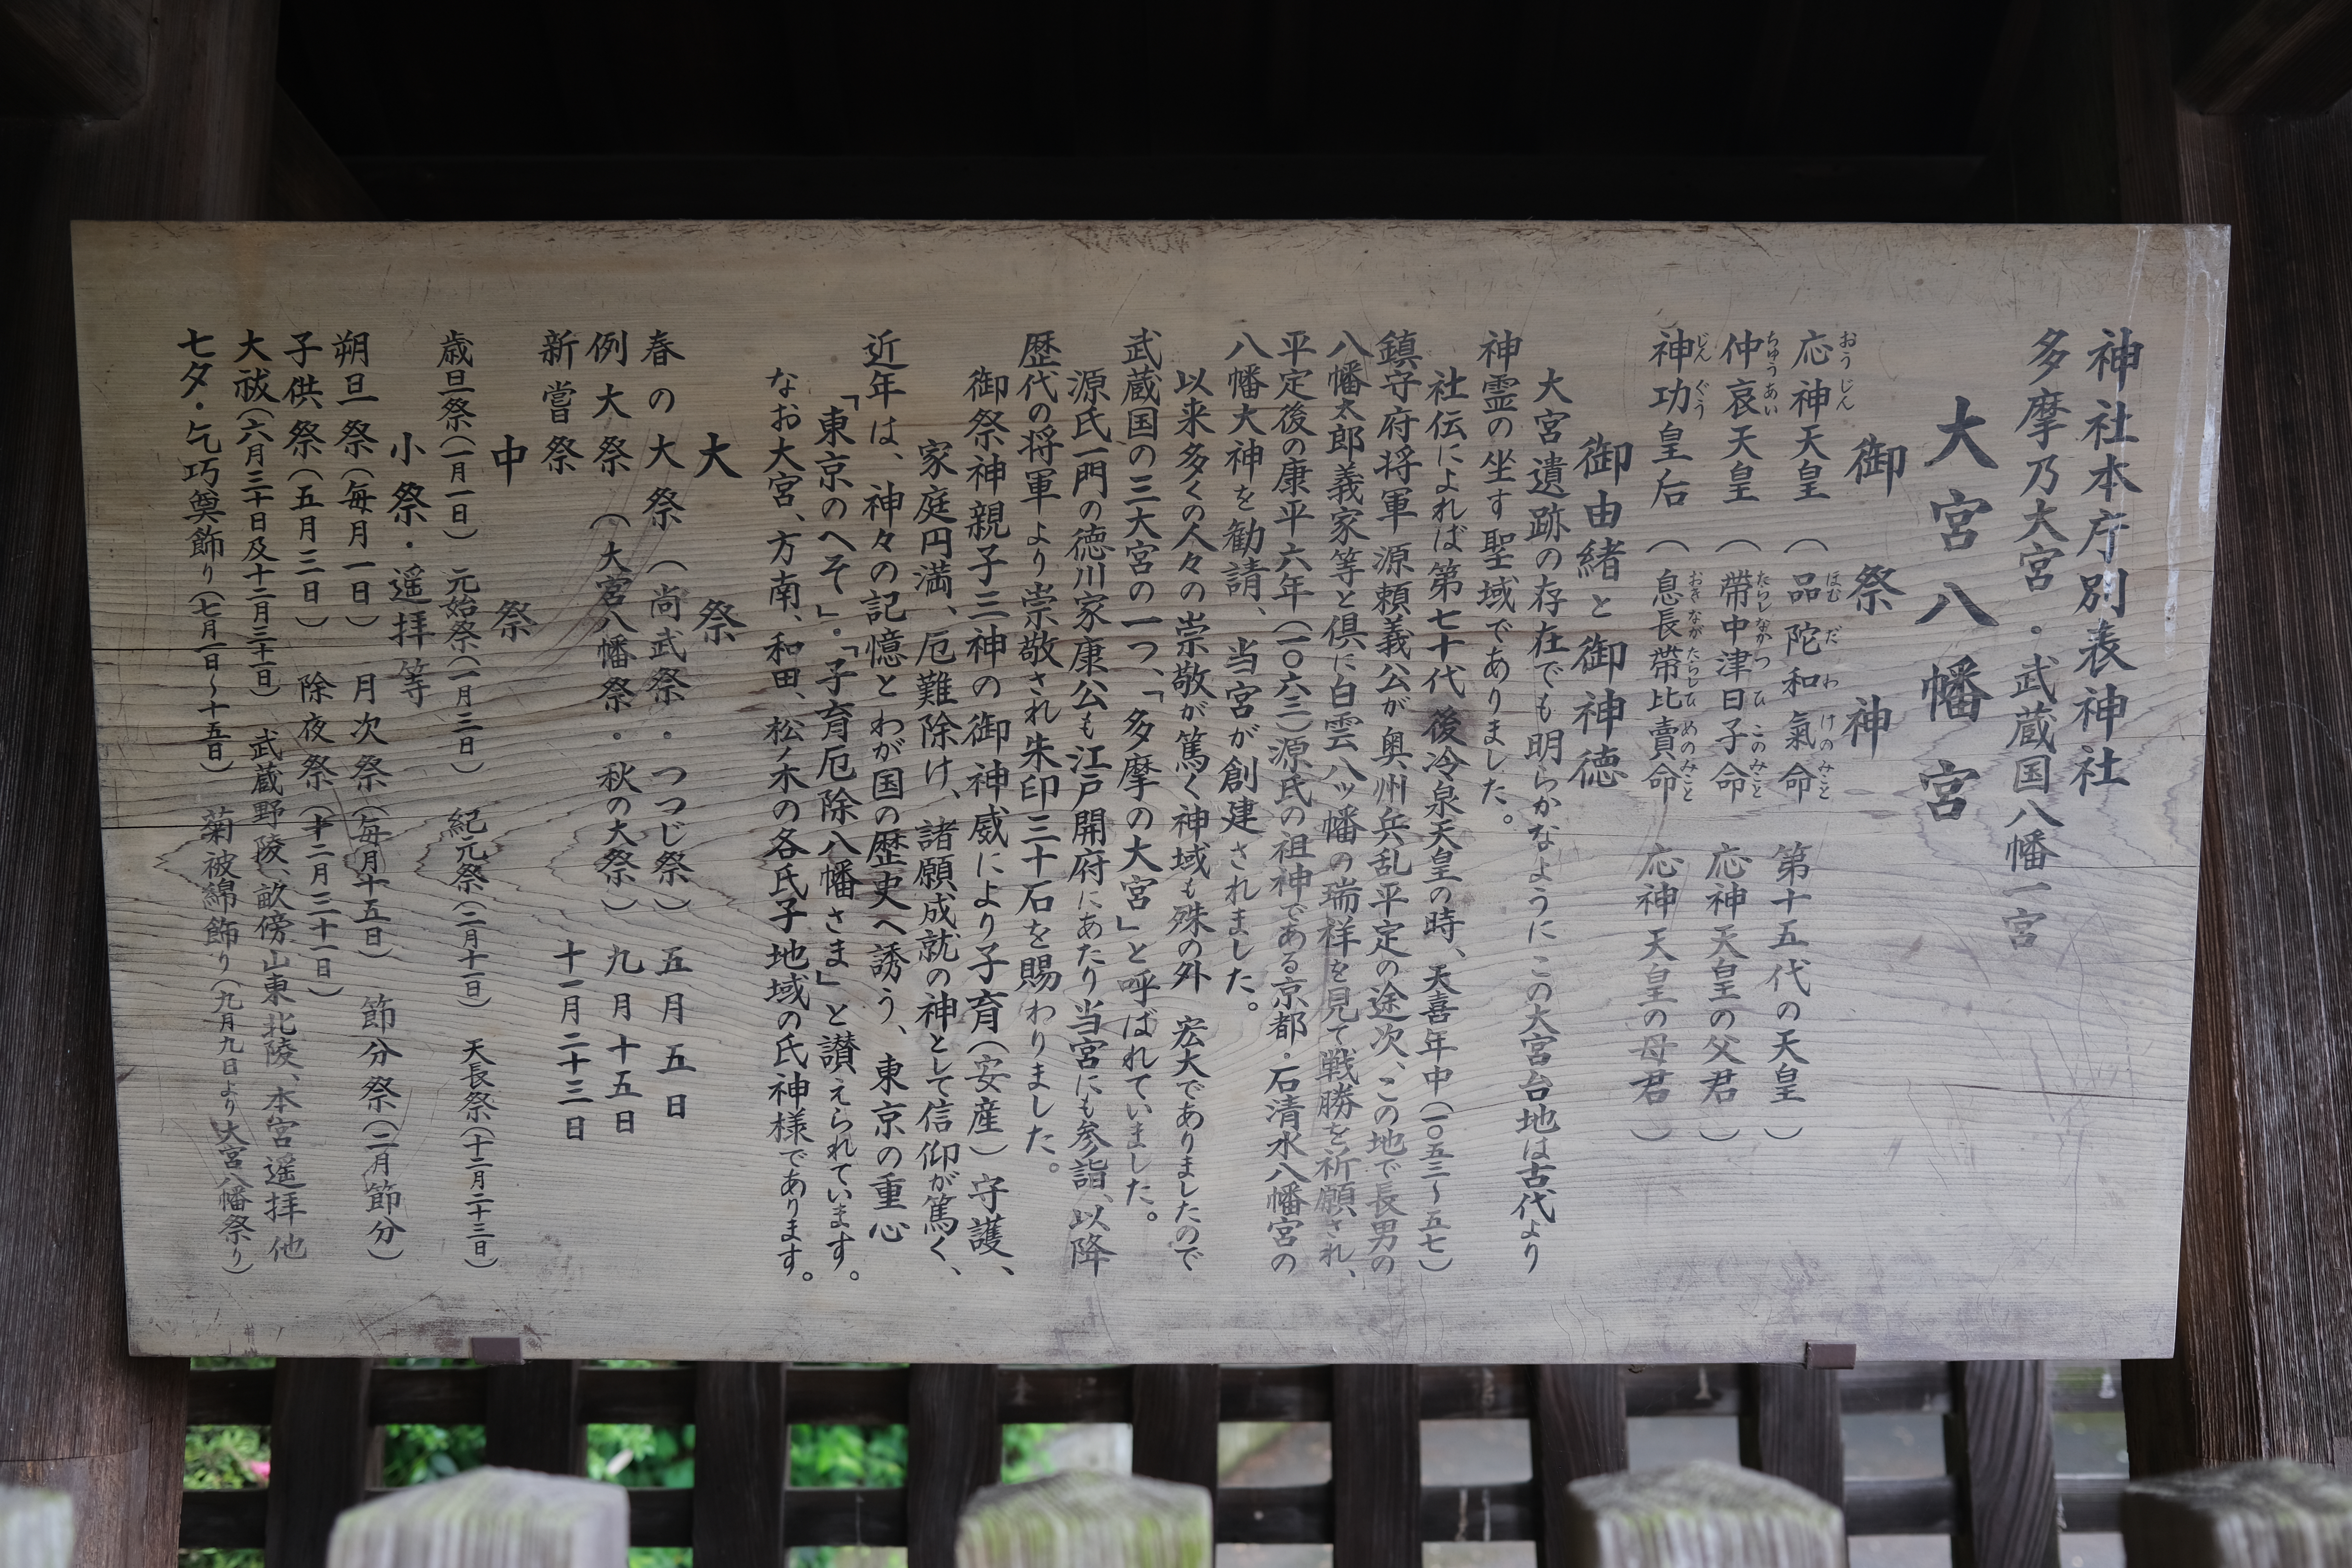 神社本庁別表神社
多摩乃大宮・武蔵国八幡一宮
大宮八幡宮
御祭神
応神天皇（品陀和氣命 第十五代の天皇）
おうじん ほむだわけのみこと
仲哀天皇（帶中津日子命 応神天皇の父君）
ちゅうあい たらしなかつひこのみこと
神功皇后（息長帶比賣命 応神天皇の母君）
じんぐう おきながたらしひめのみこと
御由緒と御神徳
大宮遺跡の存在でも明らかなようにこの大宮台地は古代より
神霊の坐す聖域でありました。
社伝によれば第七十代後冷泉天皇の時、天喜年中（一〇五三〜五七）
鎮守府将軍源頼義公が奥州兵乱平定の途次、この地で長男の
八幡太郎義家等と倶に白雲八ッ幡の瑞祥を見て戦勝を祈願され、
平定後の康平六年（一〇六三）源氏の祖神である京都・石清水八幡宮の
八幡大神を勧請、当宮が創建されました。
以来多くの人々の崇敬が篤く神域も殊の外宏大でありましたので
武蔵国の三大宮の一つ、「多摩の大宮」と呼ばれていました。
源氏一門の徳川家康公も江戸開府にあたり当宮にも参詣、以降
歴代の将軍より崇敬され朱印三十石を賜わりました。
御祭神親子三神の御神威により子育（安産）守護、
家庭円満、厄難除け、諸願成就の神として信仰が篤く、
近年は、神々の記憶とわが国の歴史へ誘う、東京の重心
「東京のへそ」・「子育厄除八幡さま」と讃えられています。
なお大宮、方南、和田、松ノ木の各氏子地域の氏神様であります。
大祭
春の大祭（尚武祭・つつじ祭）五月五日
例大祭（大宮八幡祭・秋の大祭）九月十五日
新嘗祭 十一月二十三日
中祭
歳旦祭（一月一日） 元始祭（一月三日） 紀元祭（二月十一日） 天長祭（十二月二十三日）
小祭・遥拝等
朔旦祭（毎月一日） 月次祭（毎月十五日） 節分祭（二月節分）
子供祭（五月三日） 除夜祭（十二月三十一日）
大祓（六月三十日及十二月三十一日） 武蔵野陵、畝傍山東北陵、本宮遥拝他
七夕・乞巧奠飾り（七月一日〜十五日） 菊被綿飾り（九月九日より大宮八幡祭り）